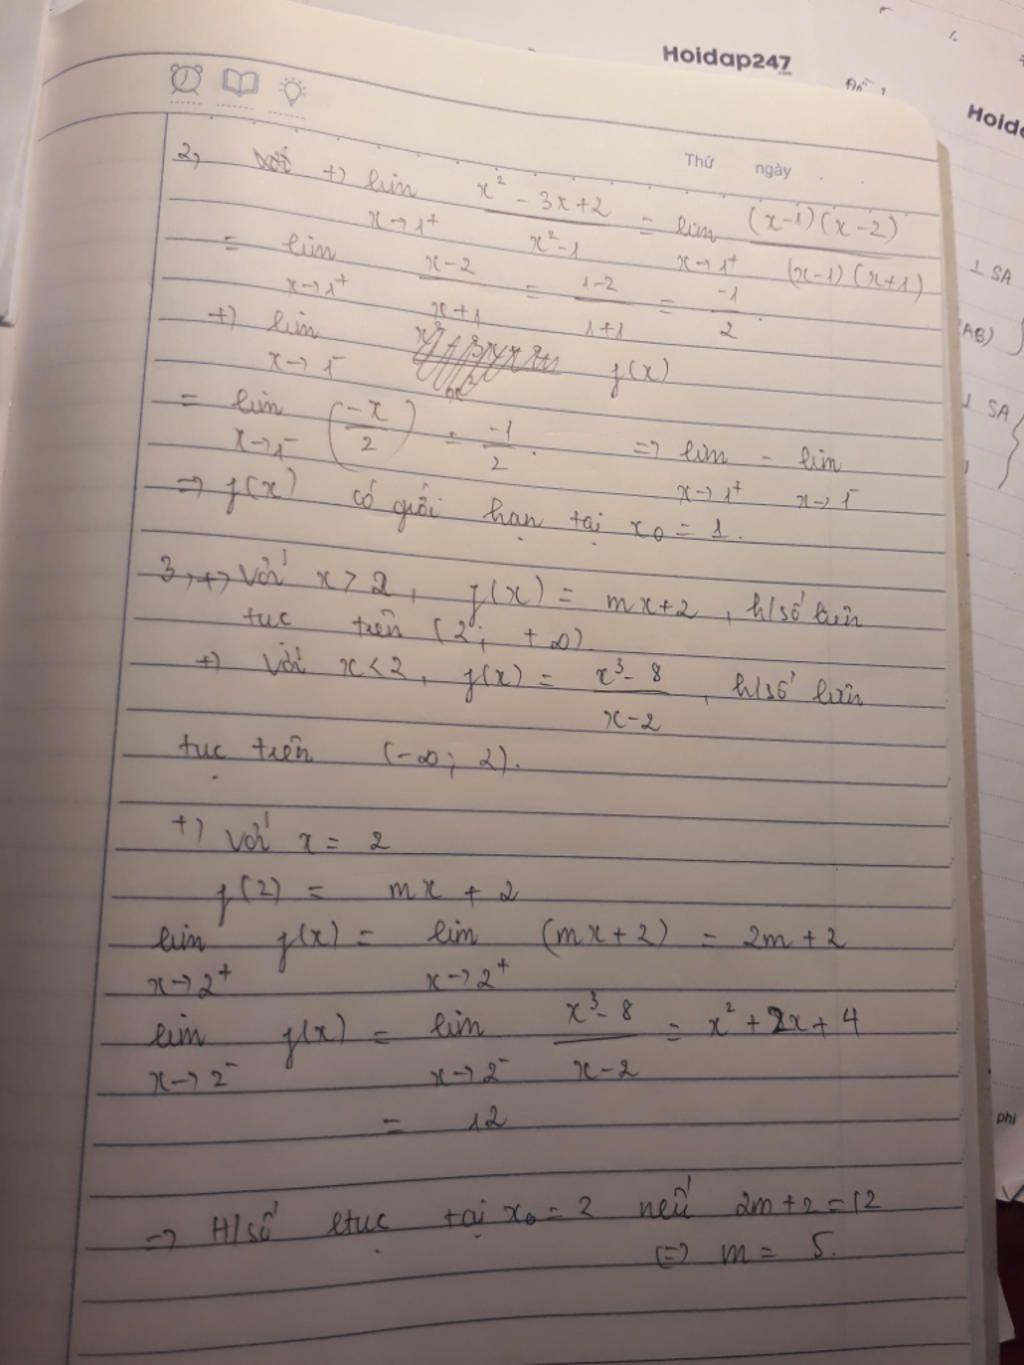 Hoidap247
Thứ ngày
2, +) lim x→1⁺ (x² - 3x + 2)/(x² - 1) = lim x→1⁺ ((x-1)(x-2))/((x-1)(x+1))
= lim x→1⁺ (x-2)/(x+1) = (1-2)/(1+1) = -1/2.
+) lim x→1⁻ f(x)
= lim x→1⁻ (-x/2) = -1/2. => lim x→1⁺ = lim x→1⁻
=> f(x) có giới hạn tại x₀ = 1.
3, +, Với x > 2, f(x) = mx+2, h/số liên
tục trên (2; +∞).
+) Với x < 2, f(x) = (x³ - 8)/(x-2), h/số liên
tục trên (-∞; 2).
+) Với x = 2
f(2) = mx + 2
lim x→2⁺ f(x) = lim x→2⁺ (mx+2) = 2m+2
lim x→2⁻ f(x) = lim x→2⁻ (x³ - 8)/(x-2) = x² + 2x + 4
= 12
=> H/số ltục tại x₀ = 2 nếu 2m+2 = 12
(=) m = 5.
Hoida
⊥ SA
(AB)
⊥ SA
phi